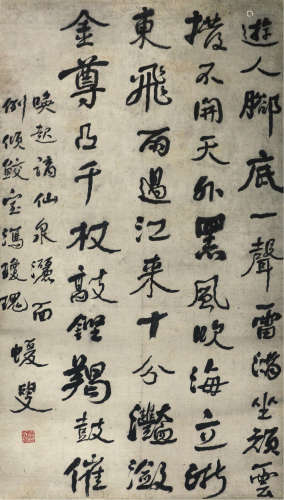 遊人腳底一聲雷滿坐頑雲
撥不開天外黑風吹海立浙
東飛雨過江来十分灩瀲
金尊凸千杖敲鏗羯鼓催
喚起謫仙泉灑面
倒傾鮫室瀉瓊瑰
蝯叟